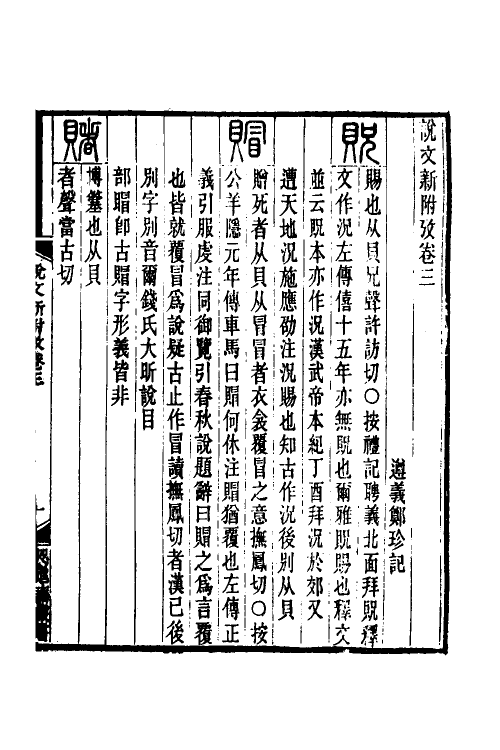 說文新附攷卷三
遵義鄭珍記
貺賜也从貝兄聲許訪切〇按禮記聘義北面拜貺釋
文作況左傳僖十五年亦無貺也爾雅貺賜也釋文
並云貺本亦作況漢武帝本紀丁酉拜況於郊又
遭天地況施應劭注況賜也知古作況後別从貝
賵贈死者从貝从冒冒者衣衾覆冒之意撫鳳切〇按
公羊隱元年傳車馬曰賵何休注賵猶覆也左傳正
義引服虔注同御覽引春秋說題辭曰賵之爲言覆
也皆就覆冒爲說疑古止作冒讀撫鳳切者漢已後
別字別音爾錢氏大昕說目
部䀤卽古賵字形義皆非
賭博簺也从貝
者聲當古切
說文新附攷卷三